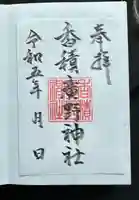 奉拝
香積廣野神社
令和五年 月 日